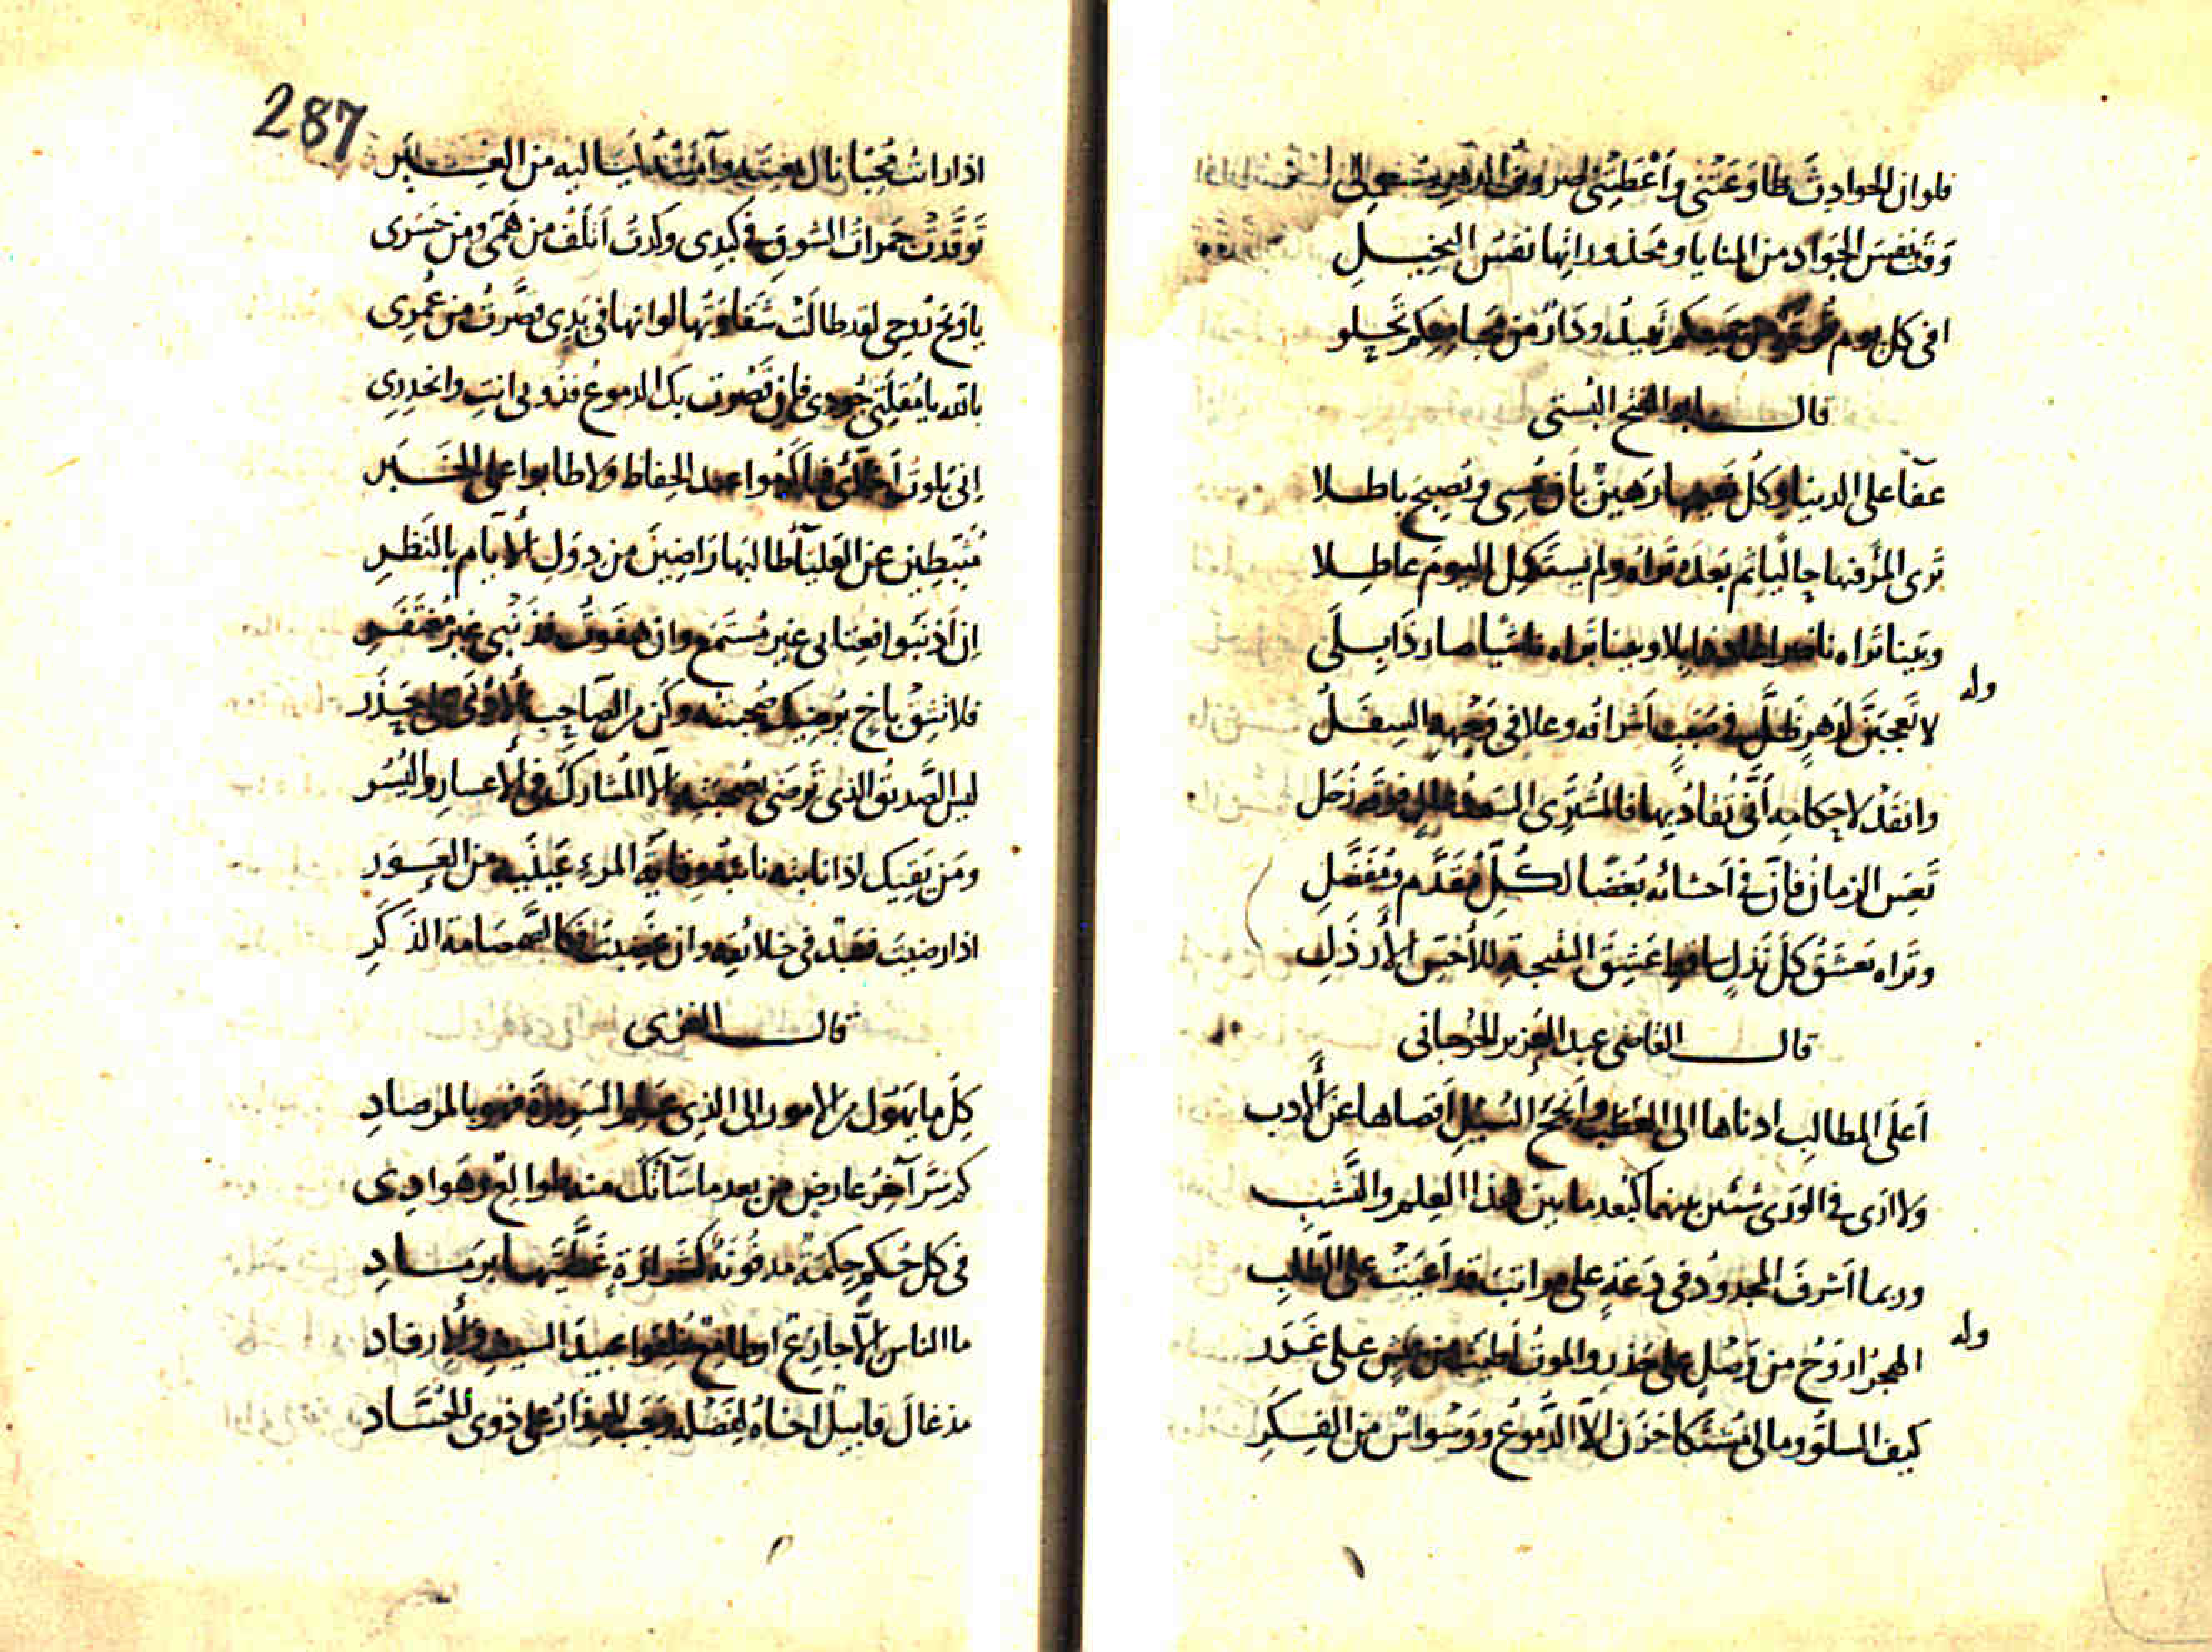 فلو ان الحوادث طاوعتنى وأعطتنى صروف الدهر سؤلى
وقت نفس الجواد من المنايا ومحذوراتها نفس البخيل
افى كل يوم من حميمكم بعيد ودار من مجامعكم تخلو
قال ابو الفتح البستى
عفآء على الدنيا وكل نعيمها رهين بان يمسى ويصبح باطلا
ترى المرء فيها حاليا ثم بعده تراه ولم يستكمل اليوم عاطلا
وبينا تراه ناضرا عاد ذابلا وبينا تراه ناشيا صار ذابلى
وله
لا تعجبن لدهر ظل فى صبب اشرافه وعلا فى وجهه السفل
وانقد لاحكامه أنى تقاد بها فالمشترى السعد عال فوقه زحل
تعس الزمان فان فى احشائه بغضا لكل مقدم ومفضل
وتراه يعشق كل نذل ساقط عشق النتيجة للأخس الأرذل
قال القاضى عبد العزيز الجرجانى
أعلى المطالب ادناها الى العطب وأنجح السبل أقصاها عن الأدب
ولا ارى فى الورى شئين بينهما كبعد ما بين هذا العلم والنشب
وربما اشرف المجدود فى دعة على مراتب قد أعيت على الطلب
وله
الهجر اروح من وصل على حذر والموت اطيب من عيش على غرر
كيف السلو ومالى مشتكا حزن الا الدموع ووسواس من الفكر
287
اذا رات محبا نال بغيته وآمنتد اليا اليه من الغير
توقدت جمرات الشوق فى كبدى وكدت أتلف من همى ومن حسرى
يا ويح روحى لقد طالت شقاوتها لو انها فى يدى قصرت من عمرى
بالله يا مقلتى جودى فان نضوت بك الدموع فذوبى انت وانحدرى
انى بلوت أخلائى فما كرموا عند الحفاظ ولا طابوا على الخبر
مثبطين عن العليآء طالبها راضين من دول الأيام بالنظر
ان اذنبوا فعتابى غير مستمع وان هفوت فذنبى غير مغتفر
فلا تثق باخ يرضيك صحبته وكن من الصاحب الأدنى على حذر
ليس الصديق الذى ترضى بصحبته الا المشارك فى الأعسار واليسر
ومن يقيك اذا نابته نائبة وقاية المرء عينيه من العور
اذا رضيت فعبد فى خلائقه وان غضبت فكالصمصامة الذكر
قال الغزى
كل ما يهول من الامور الى الذى علم السريرة فهو بالمرصاد
كم سر آخر عارض من بعد ما سآتك منه طوالع وهوادى
فى كل حكم حكمة مدفونة كشرارة غطيتها برماد
ما الناس الا جازع او طامع خلقوا عبيد السيف والأرفاد
مذ غال قابيل اخاه لفضله وجب الحذار على ذوى الحساد